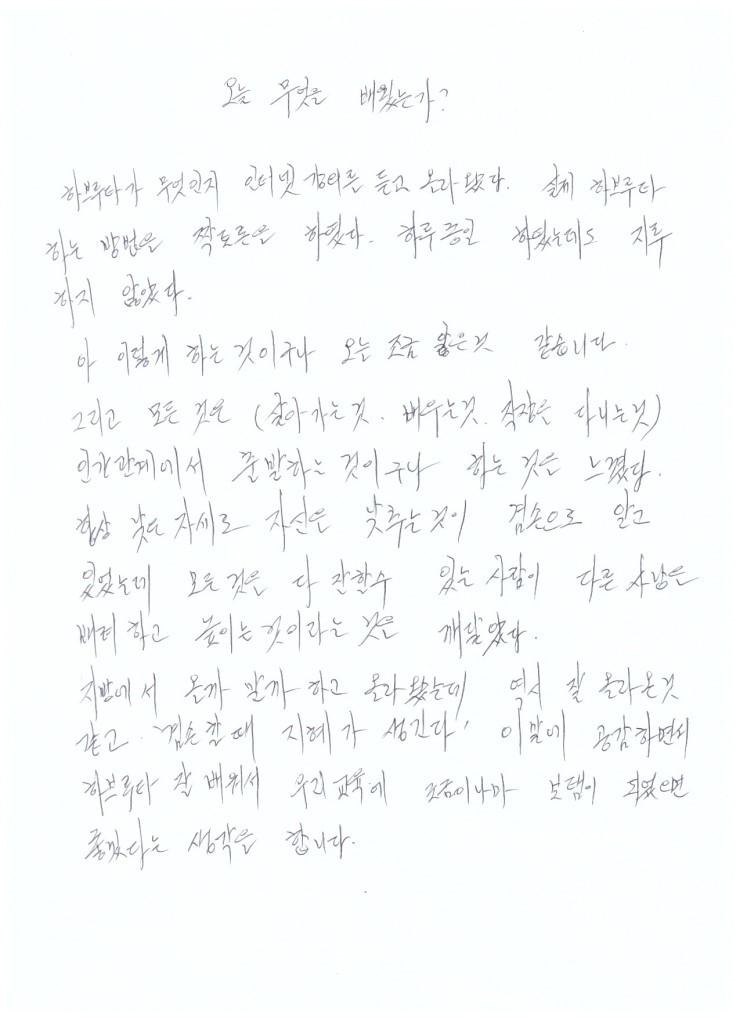 오늘 무엇을 배웠는가?
하브루타가 무엇인지 인터넷 강의를 듣고 올라왔다. 실제 하브루타
하는 방법을 짝토론을 하였다. 하루종일 하였는데도 지루
하지 않았다.
아 이렇게 하는 것이구나 오늘 조금 알은것 같습니다.
그리고 모든 것은 (살아가는것. 배우는것. 직장은 다니는것)
인간관계에서 출발하는 것이구나 하는 것을 느꼈다.
항상 낮은 자세로 자신을 낮추는것이 겸손으로 알고
있었는데 모든 것을 다 잘할수 있는 사람이 다른 사람을
배려하고 높이는 것이라는 것을 깨달았다.
지방에서 올까 말까 하고 올라왔는데 역시 잘 올라온것
같고. '겸손할때 지혜가 생긴다' 이말에 공감하면서
하브루타 잘 배워서 우리교육에 조금이나마 보탬이 되었으면
좋겠다는 생각을 합니다.